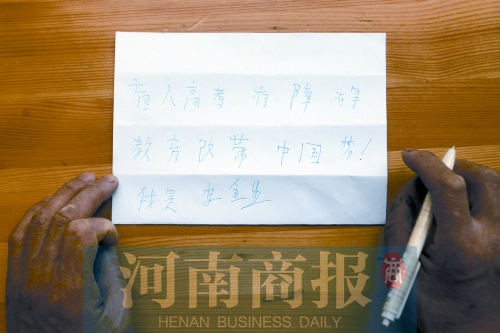 盲人高考 有障碍
教育改革 中国梦!
我是 李金生
河南商报
HENAN BUSINESS DAILY